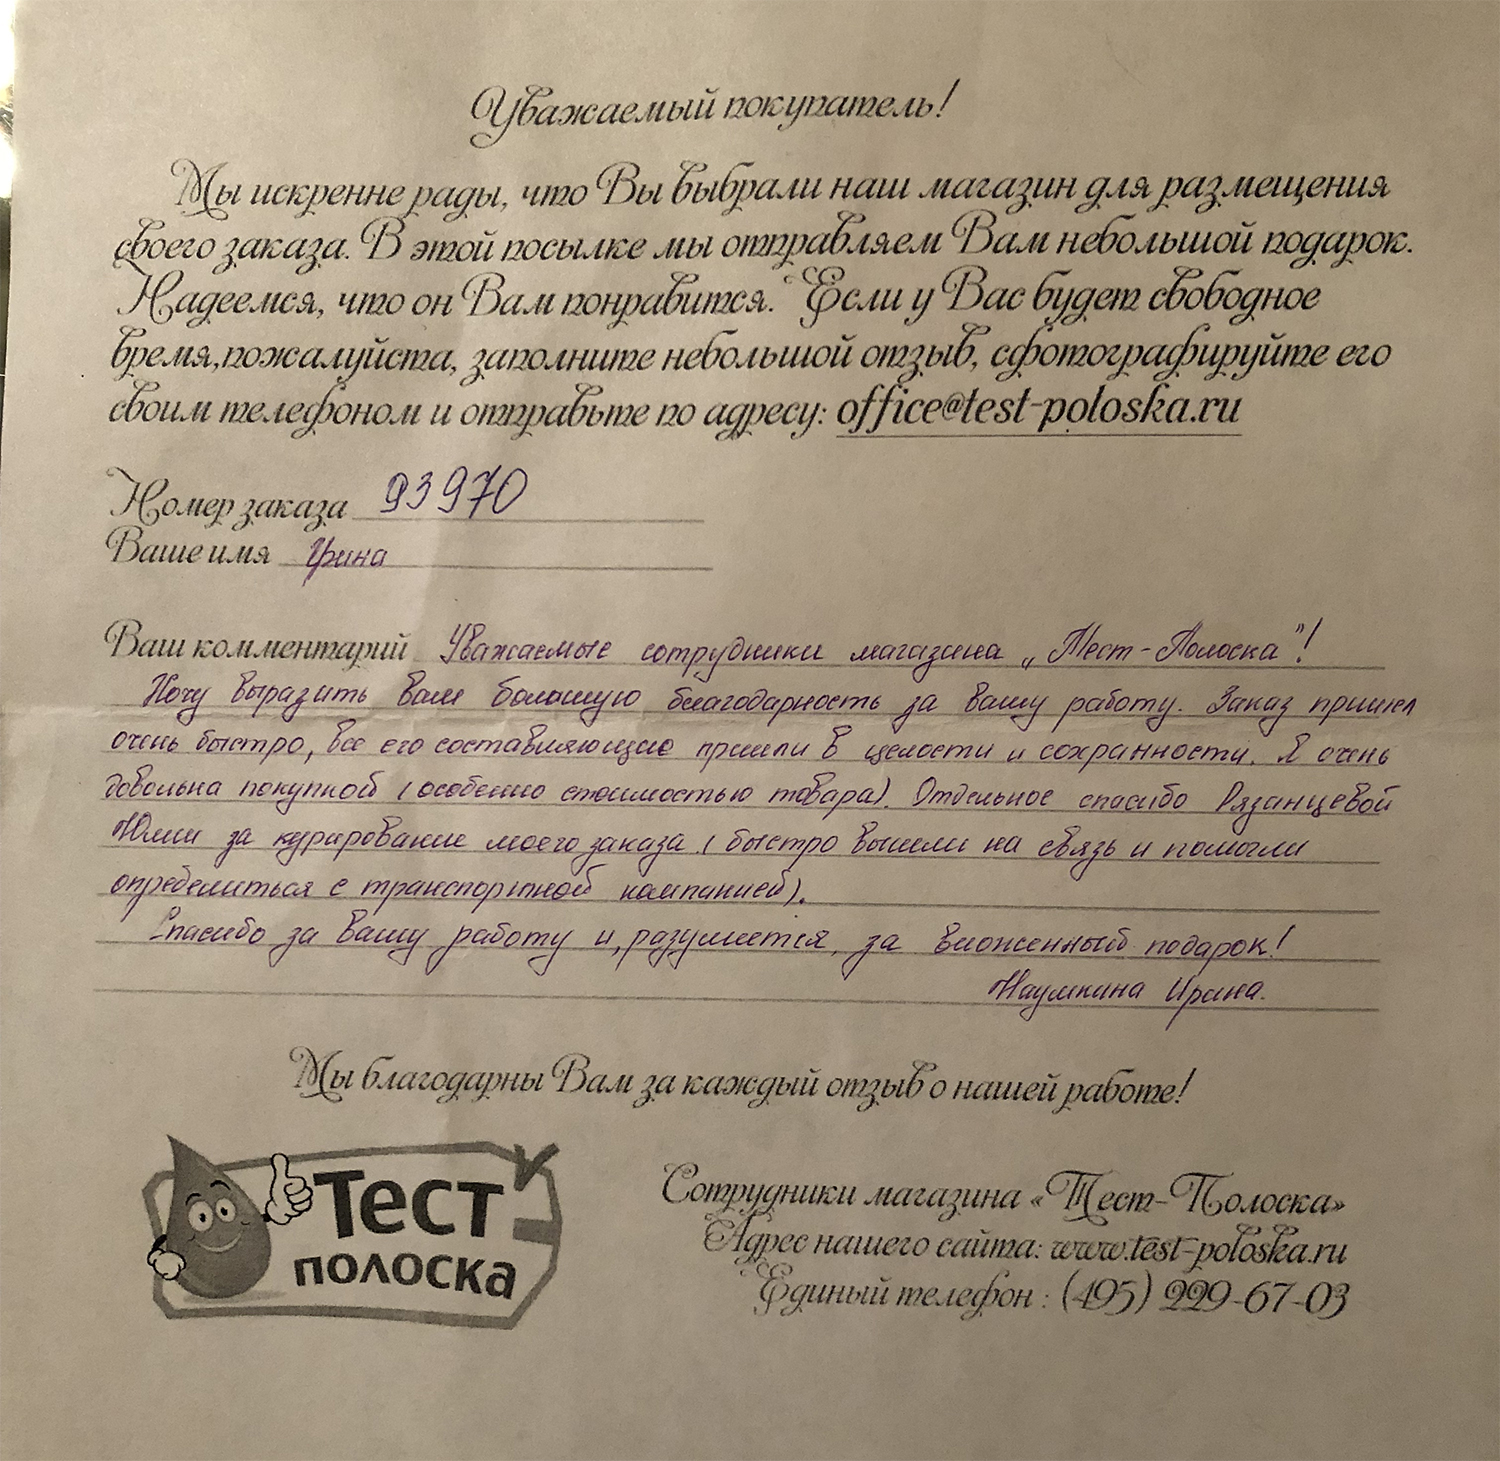 Уважаемый покупатель!
Мы искренне рады, что Вы выбрали наш магазин для размещения
своего заказа. В этой посылке мы отправляем Вам небольшой подарок.
Надеемся, что он Вам понравится. Если у Вас будет свободное
время,пожалуйста, заполните небольшой отзыв, сфотографируйте его
своим телефоном и отправьте по адресу: office@test-poloska.ru
Номер заказа 93970
Ваше имя Ирина
Ваш комментарий Уважаемые сотрудники магазина „Тест-Полоска"!
Хочу выразить вам большую благодарность за вашу работу. Заказ пришел
очень быстро, все его составляющие пришли в целости и сохранности. Я очень
довольна покупкой (особенно стоимостью товара). Отдельное спасибо Рязанцевой
Юлии за курирование моего заказа (быстро вышли на связь и помогли
определиться с транспортной компанией).
Спасибо за вашу работу и, разумеется, за вложенный подарок!
Наумкина Ирина.
Мы благодарны Вам за каждый отзыв о нашей работе!
Тест
полоска
Сотрудники магазина «Тест-Полоска»
Адрес нашего сайта: www.test-poloska.ru
Единый телефон : (495) 229-67-03